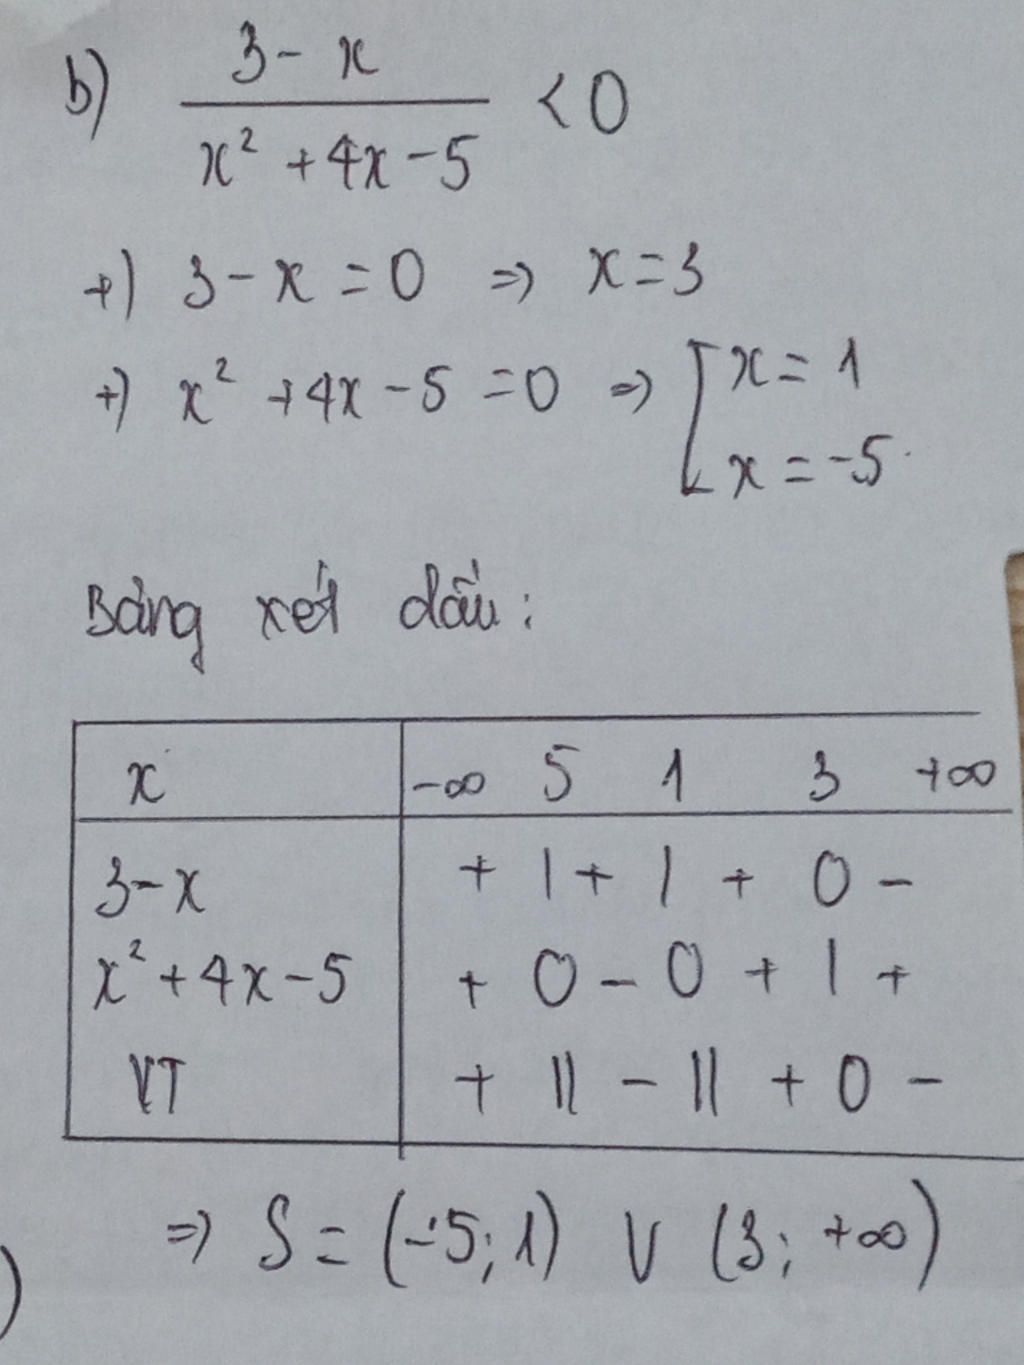 b) \frac{3-x}{x² + 4x - 5} < 0
+) 3 - x = 0 => x = 3
+) x² + 4x - 5 = 0 => [ x = 1
x = -5
Bảng xét dấu:
x -∞ 5 1 3 +∞
3-x + | + | + 0 -
x² + 4x - 5 + 0 - 0 + | +
VT + || - || + 0 -
=> S = (-5; 1) ∪ (3; +∞)
)